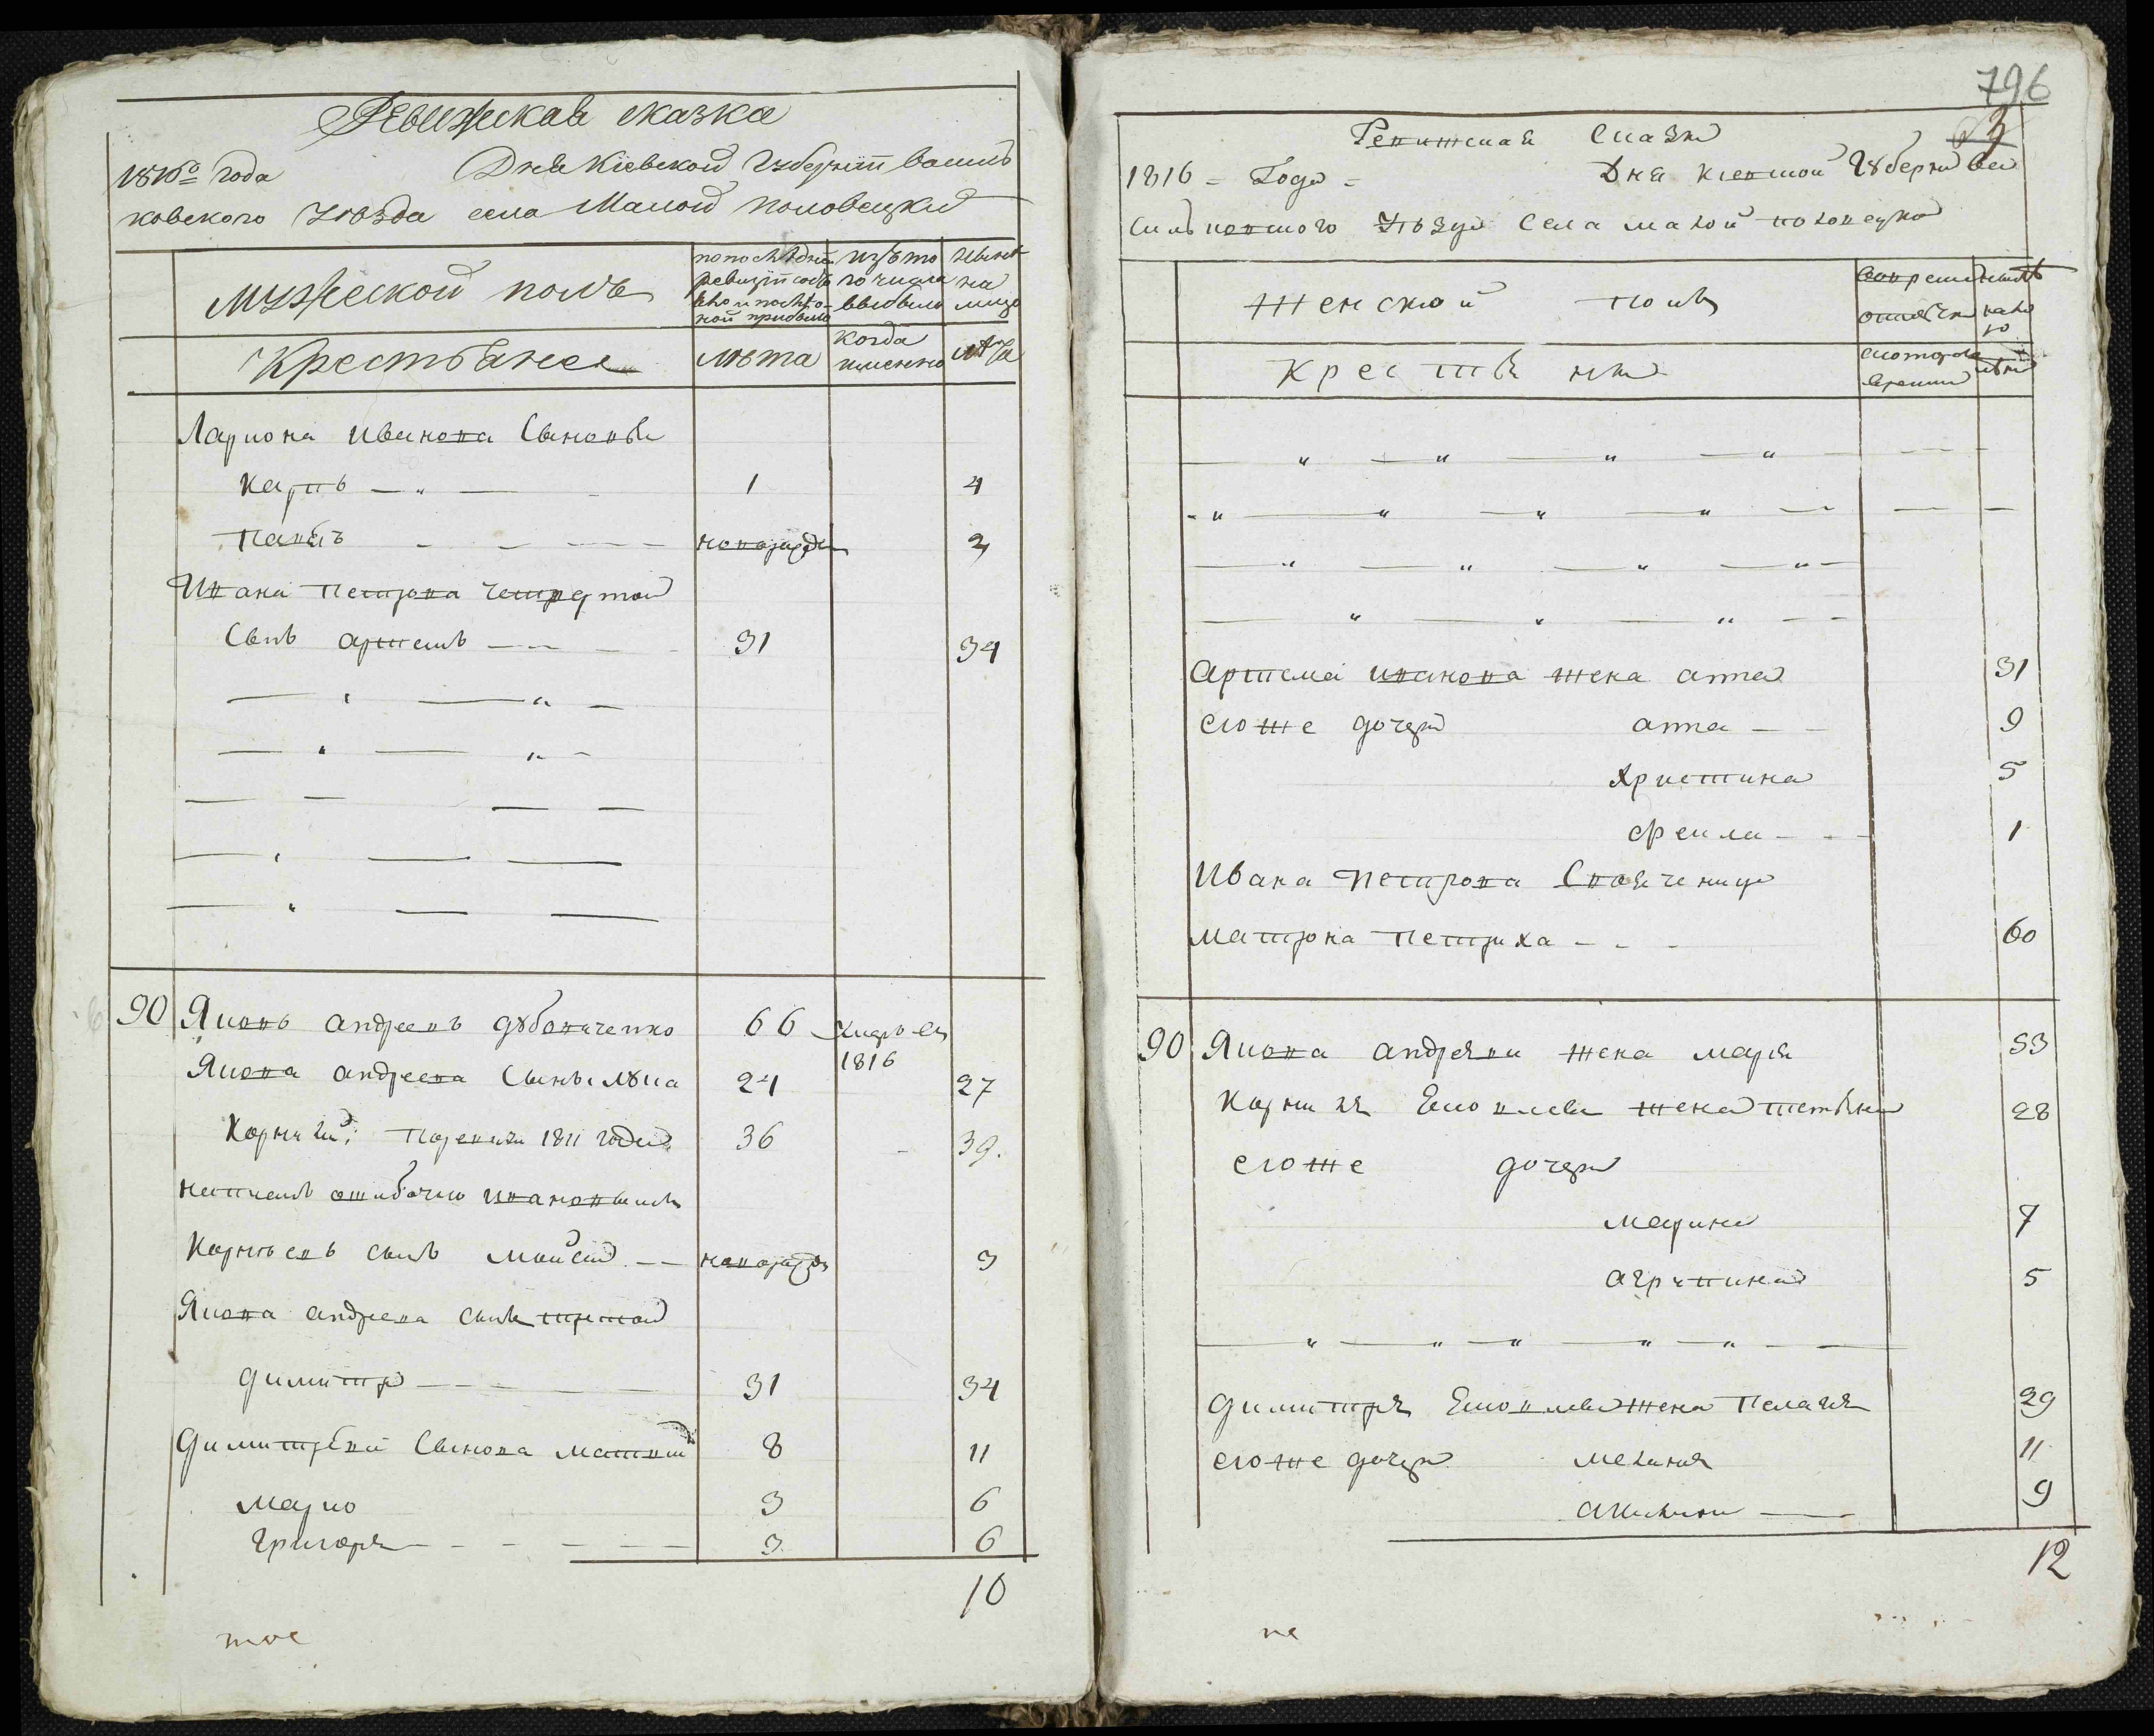 Ревижская сказка
1816го года Дня Кіевской Губерніи василь
ковского уѣзда села Малой половецкой
Мужеской полъ
по последней ревизіи состо
яло и после о
ной прибыло
изъ то
го числа
выбыло
ныне
на
лице
Крестьяне
лѣта
когда
именно
лѣта
Лариона Иванова Сыновья
Карпъ 1 4
Павелъ новорожден 2
Ивана Петрова четвертой
Сынъ Артемъ 31 34
90 Яковъ андреевъ дубовиченко 66 умре въ
1816
Якова андреева Сынъ лука 24 27
Корнилий 1811 года 36 39.
написанъ ошибочно ивановымъ
Корнѣевъ сынъ Мойсей новорожден 3
Якова андреева сынъ третой
Димитрій 31 34
Димитрія Сынова матвей 8 11
марко 3 6
Григорій 3 6
10
тое
796
3
Ревижская Сказка
1816 Года Дня Кіевской Губерни ва
сильковского уѣзда Села малой половецкой
Женской полъ
во временной
отлучке
ныне
на ли
цо
Крестьянки
с которого
времени
лѣта
Артема иванова жена анна 31
егоже дочери анна 9
Христина 5
1
Ивана Петрова Своячница
матрона Петриха 60
90 Якова андреева жена марія 53
Корнилія Яковлева жена татьяна 28
егоже дочери
марина 7
агрипина 5
Димитрія Яковлева жена Пелагія 29
егоже дочери меланія 11
акилина 9
12